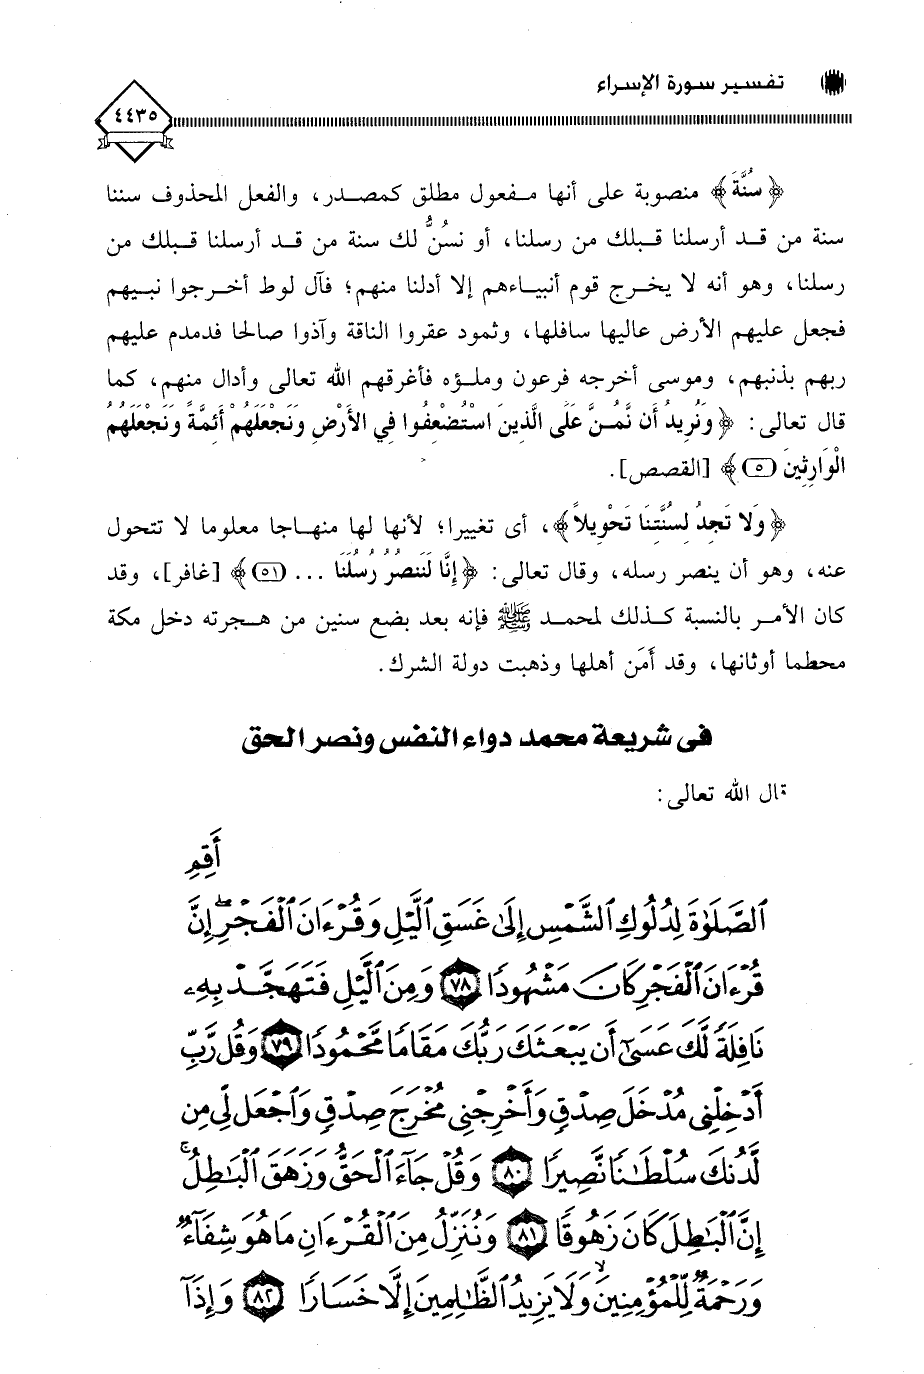 تفسير سورة الإسراء
٤٤٣٥
﴿سُنَّةَ﴾ منصوبة على أنها مفعول مطلق كمصدر، والفعل المحذوف سننا
سنة من قد أرسلنا قبلك من رسلنا، أو نسُنُّ لك سنة من قد أرسلنا قبلك من
رسلنا، وهو أنه لا يخرج قوم أنبياءهم إلا أدلنا منهم؛ فآل لوط أخرجوا نبيهم
فجعل عليهم الأرض عاليها سافلها، وثمود عقروا الناقة وآذوا صالحا فدمدم عليهم
ربهم بذنبهم، وموسى أخرجه فرعون وملؤه فأغرقهم الله تعالى وأدال منهم، كما
قال تعالى: ﴿وَنُرِيدُ أَن نَّمُنَّ عَلَى الَّذِينَ اسْتُضْعِفُوا فِي الأَرْضِ وَنَجْعَلَهُمْ أَئِمَّةً وَنَجْعَلَهُمُ
الْوَارِثِينَ (٥)﴾ [القصص].
﴿وَلا تَجِدُ لِسُنَّتِنَا تَحْوِيلاً﴾، أى تغييرا؛ لأنها لها منهاجا معلوما لا تتحول
عنه، وهو أن ينصر رسله، وقال تعالى: ﴿إِنَّا لَنَنصُرُ رُسُلَنَا ... (٥١)﴾ [غافر]، وقد
كان الأمر بالنسبة كذلك لمحمد ﷺ فإنه بعد بضع سنين من هجرته دخل مكة
محطما أوثانها، وقد أَمَن أهلها وذهبت دولة الشرك.
فى شريعة محمد دواء النفس ونصر الحق
قال الله تعالى:
أَقِمِ
ٱلصَّلَوٰةَ لِدُلُوكِ ٱلشَّمْسِ إِلَىٰ غَسَقِ ٱلَّيْلِ وَقُرْءَانَ ٱلْفَجْرِ ۖ إِنَّ
قُرْءَانَ ٱلْفَجْرِ كَانَ مَشْهُودًا ٧٨ وَمِنَ ٱلَّيْلِ فَتَهَجَّدْ بِهِۦ
نَافِلَةً لَّكَ عَسَىٰٓ أَن يَبْعَثَكَ رَبُّكَ مَقَامًا مَّحْمُودًا ٧٩ وَقُل رَّبِّ
أَدْخِلْنِى مُدْخَلَ صِدْقٍ وَأَخْرِجْنِى مُخْرَجَ صِدْقٍ وَٱجْعَل لِّى مِن
لَّدُنكَ سُلْطَـٰنًا نَّصِيرًا ٨٠ وَقُلْ جَآءَ ٱلْحَقُّ وَزَهَقَ ٱلْبَـٰطِلُ ۚ
إِنَّ ٱلْبَـٰطِلَ كَانَ زَهُوقًا ٨١ وَنُنَزِّلُ مِنَ ٱلْقُرْءَانِ مَا هُوَ شِفَآءٌ
وَرَحْمَةٌ لِّلْمُؤْمِنِينَ ۙ وَلَا يَزِيدُ ٱلظَّـٰلِمِينَ إِلَّا خَسَارًا ٨٢ وَإِذَآ